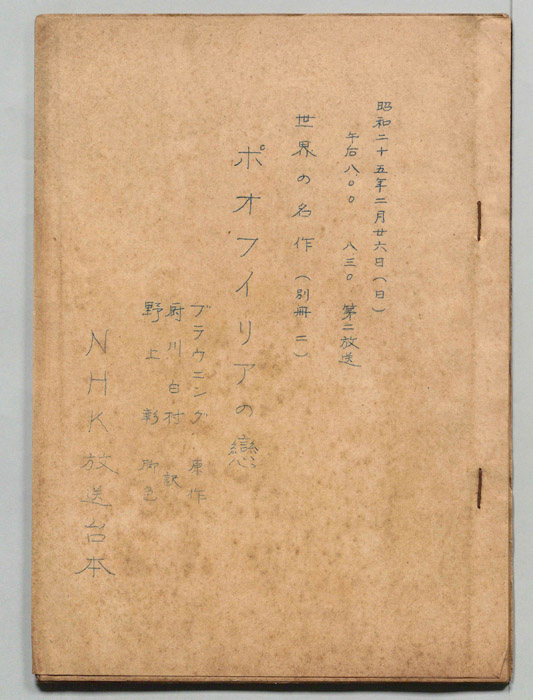 昭和二十五年二月廿六日（日）
午后八.〇〇 八三〇 第二放送
世界の名作（別冊二）
ポオフイリアの戀
ブラウニング 原作
厨川白村 訳
野上彰 脚色
NHK放送台本